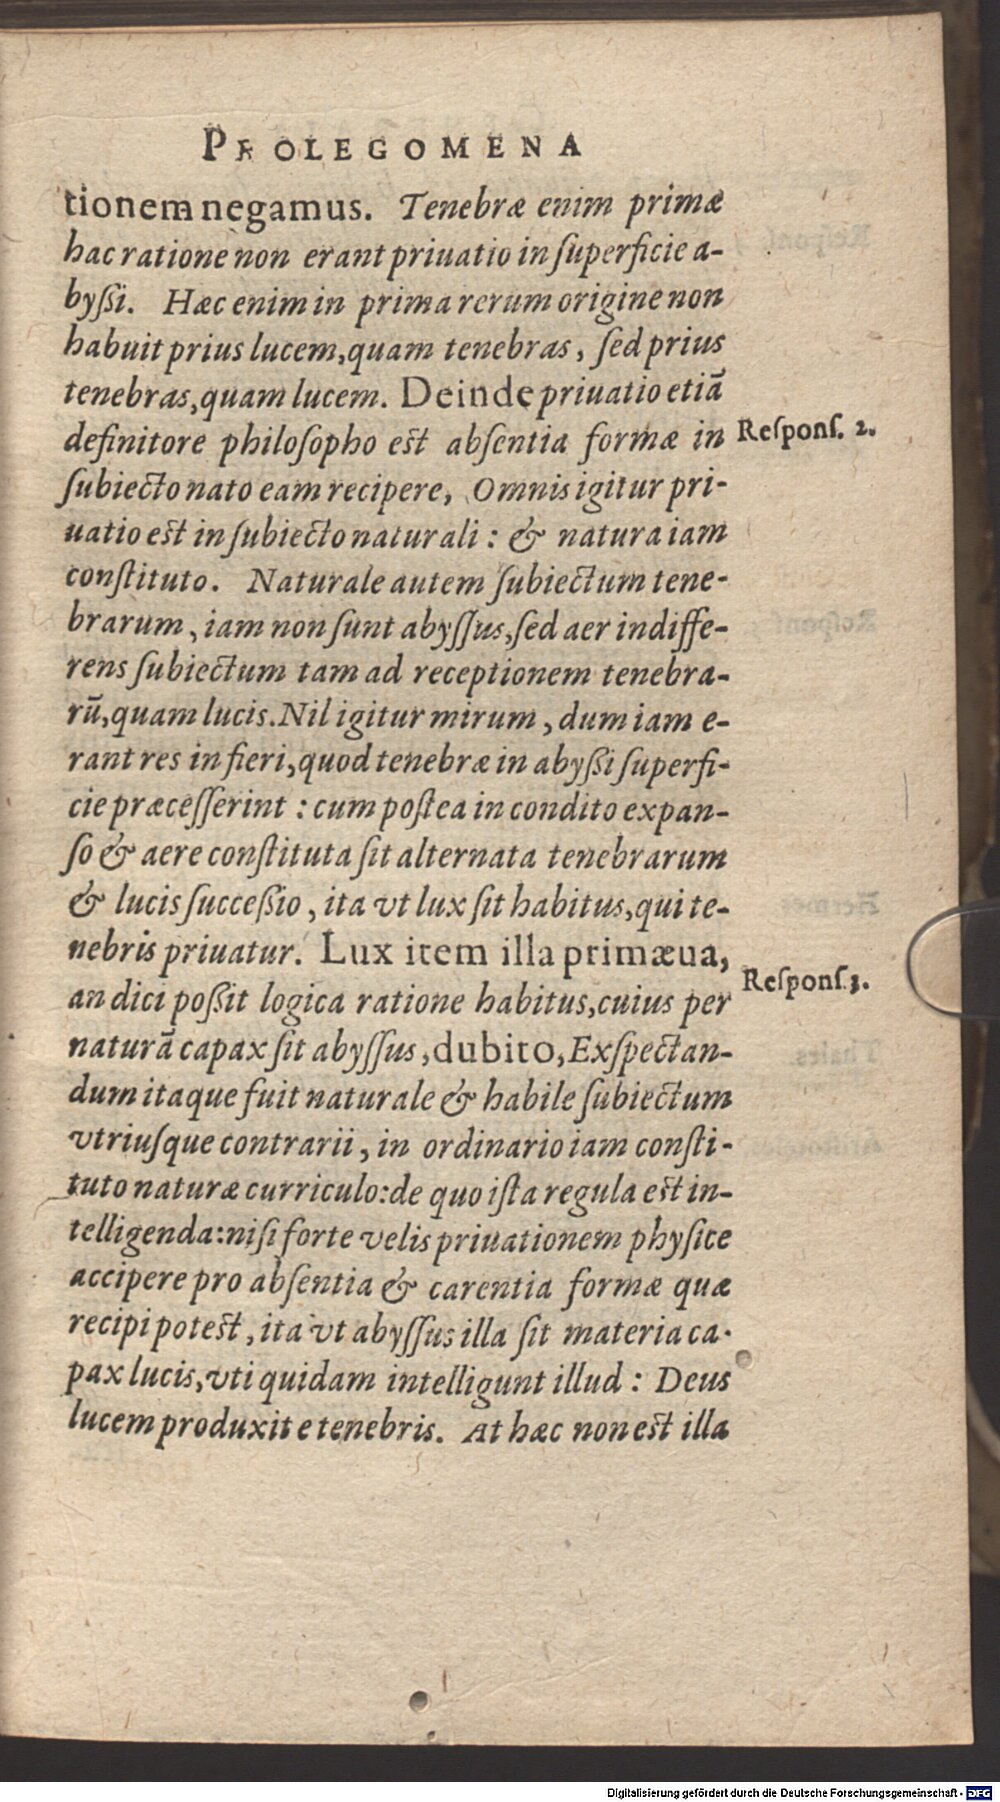 PROLEGOMENA
tionem negamus. Tenebræ enim primæ
hac ratione non erant priuatio in ſuperficie a-
byſsi. Hæc enim in prima rerum origine non
habuit prius lucem, quam tenebras, ſed prius
tenebras, quam lucem. Deinde priuatio etiā
definitore philoſopho est abſentia formæ in
Reſponſ. 2.
ſubiecto nato eam recipere, Omnis igitur pri-
uatio est in ſubiecto naturali: & natura iam
conſtituto. Naturale autem ſubiectum tene-
brarum, iam non ſunt abyſſus, ſed aer indiffe-
rens ſubiectum tam ad receptionem tenebra-
rū, quam lucis. Nil igitur mirum, dum iam e-
rant res in fieri, quod tenebræ in abyſsi ſuperfi-
cie præceſſerint: cum poſtea in condito expan-
ſo & aere conſtituta ſit alternata tenebrarum
& lucis ſucceſsio, ita vt lux ſit habitus, qui te-
nebris priuatur. Lux item illa primæua,
Reſponſ. 3.
an dici poſsit logica ratione habitus, cuius per
naturā capax ſit abyſſus, dubito, Exſpectan-
dum itaque fuit naturale & habile ſubiectum
vtriuſque contrarii, in ordinario iam conſti-
tuto naturæ curriculo: de quo iſta regula est in-
telligenda: niſi forte velis priuationem phyſice
accipere pro abſentia & carentia formæ quæ
recipi potest, ita vt abyſſus illa ſit materia ca-
pax lucis, vti quidam intelligunt illud: Deus
lucem produxit e tenebris. At hæc non est illa
Digitalisierung gefördert durch die Deutsche Forschungsgemeinschaft - DFG